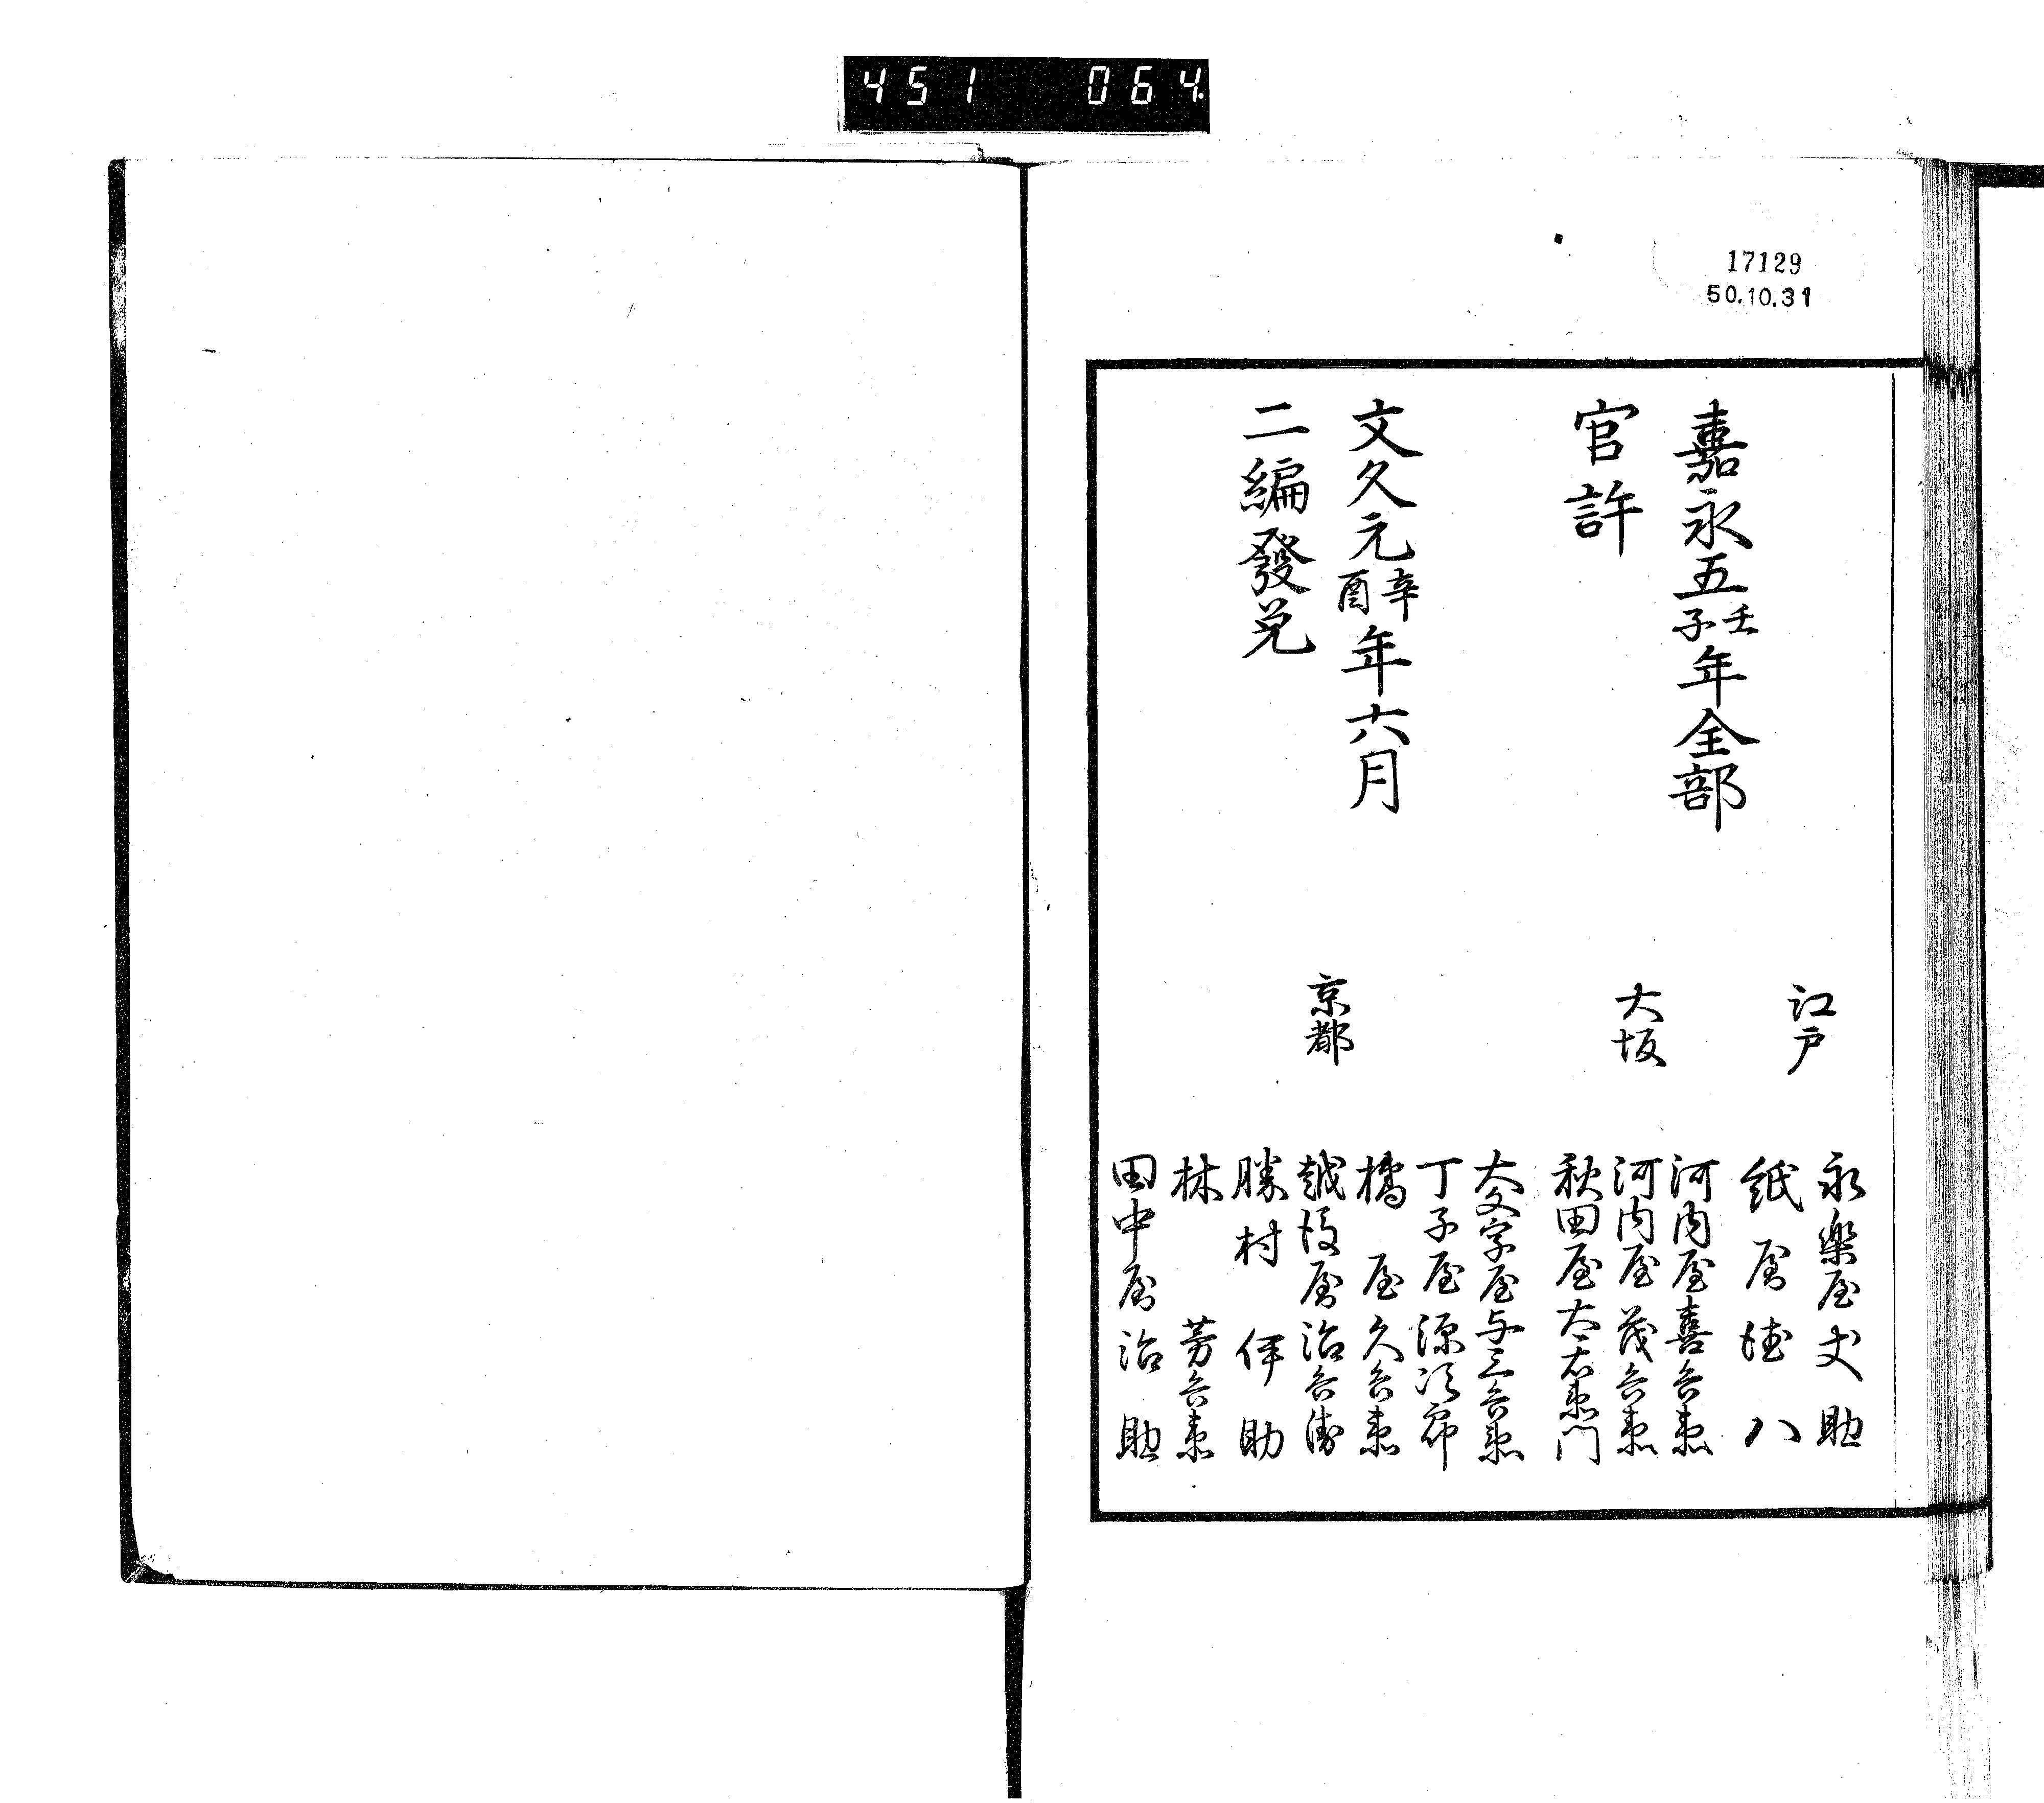 451 064
17129
50.10.31
嘉永五壬子年全部
官許
文久元辛酉年六月
二編發兌
江戸
永樂屋丈助
紙屋徳八
大坂
河内屋喜兵衛
河内屋茂兵衛
秋田屋太右衛門
京都
大文字屋与三兵衛
丁子屋源次郎
橘屋久兵衛
越後屋治兵衛
勝村伊助
林芳兵衛
田中屋治助